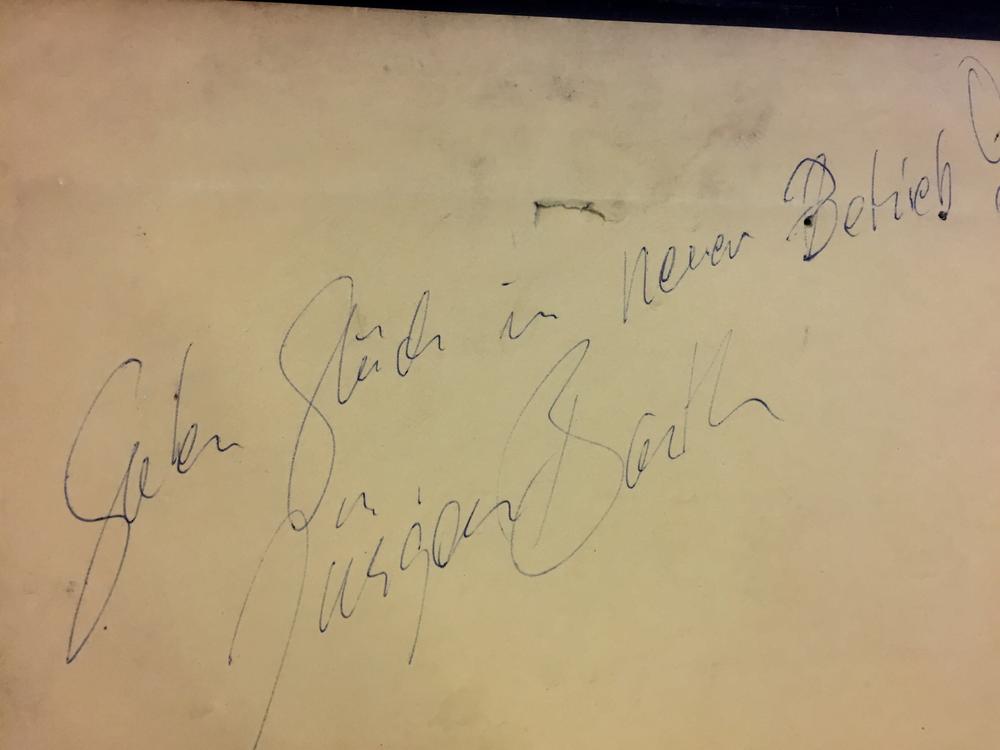 Guten Glück im neuen Betrieb
Jürgen Barth